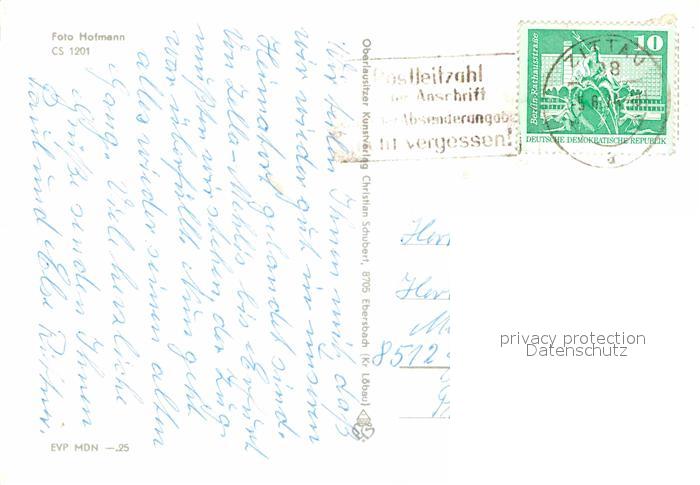 Foto Hofmann
CS 1201
Wir teilen Ihnen mit, daß
wir wieder gut in unserem
Heimatort gelandet sind.
Von Zella-Mehlis bis Erfurt
mußten wir stehen, der Zug
war überfüllt. Nun geht
alles wieder seinen alten
Gang. Viele herzliche
Grüße senden Ihnen
Paul und Else
EVP MDN —.25
Oberlausitzer Kunstverlag Christian Schubert, 8705 Ebersbach (Kr. Löbau)
Postleitzahl
Anschrift
Absenderangabe
vergessen!
ZITTAU
Berlin, Rathausstraße
10
DEUTSCHE DEMOKRATISCHE REPUBLIK
8512
privacy protection
Datenschutz